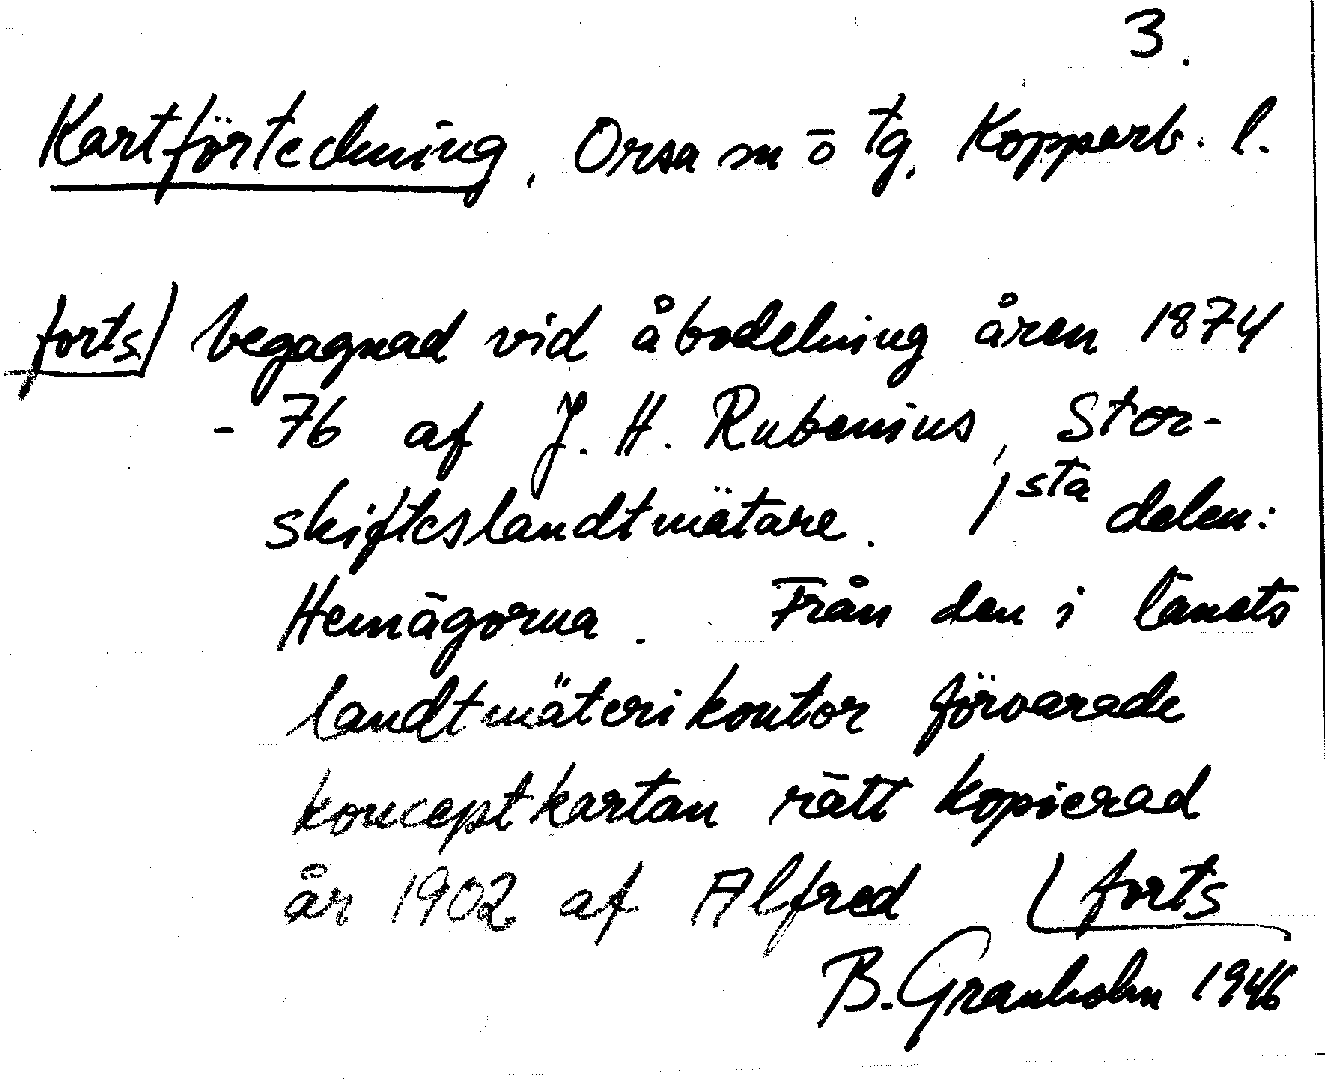 3.
Kartförteckning, Orsa m ö tg, Kopparb. l.
forts) begagnad vid åbodelning åren 1874
- 76 af J. H. Rubenius, Stor-
skifteslandtmätare. 1sta delen:
Hemägorna. Från den i länets
landtmäterikontor förvarade
konceptkartan rätt kopierad
år 1902 af Alfred (forts
B. Granholm 1946